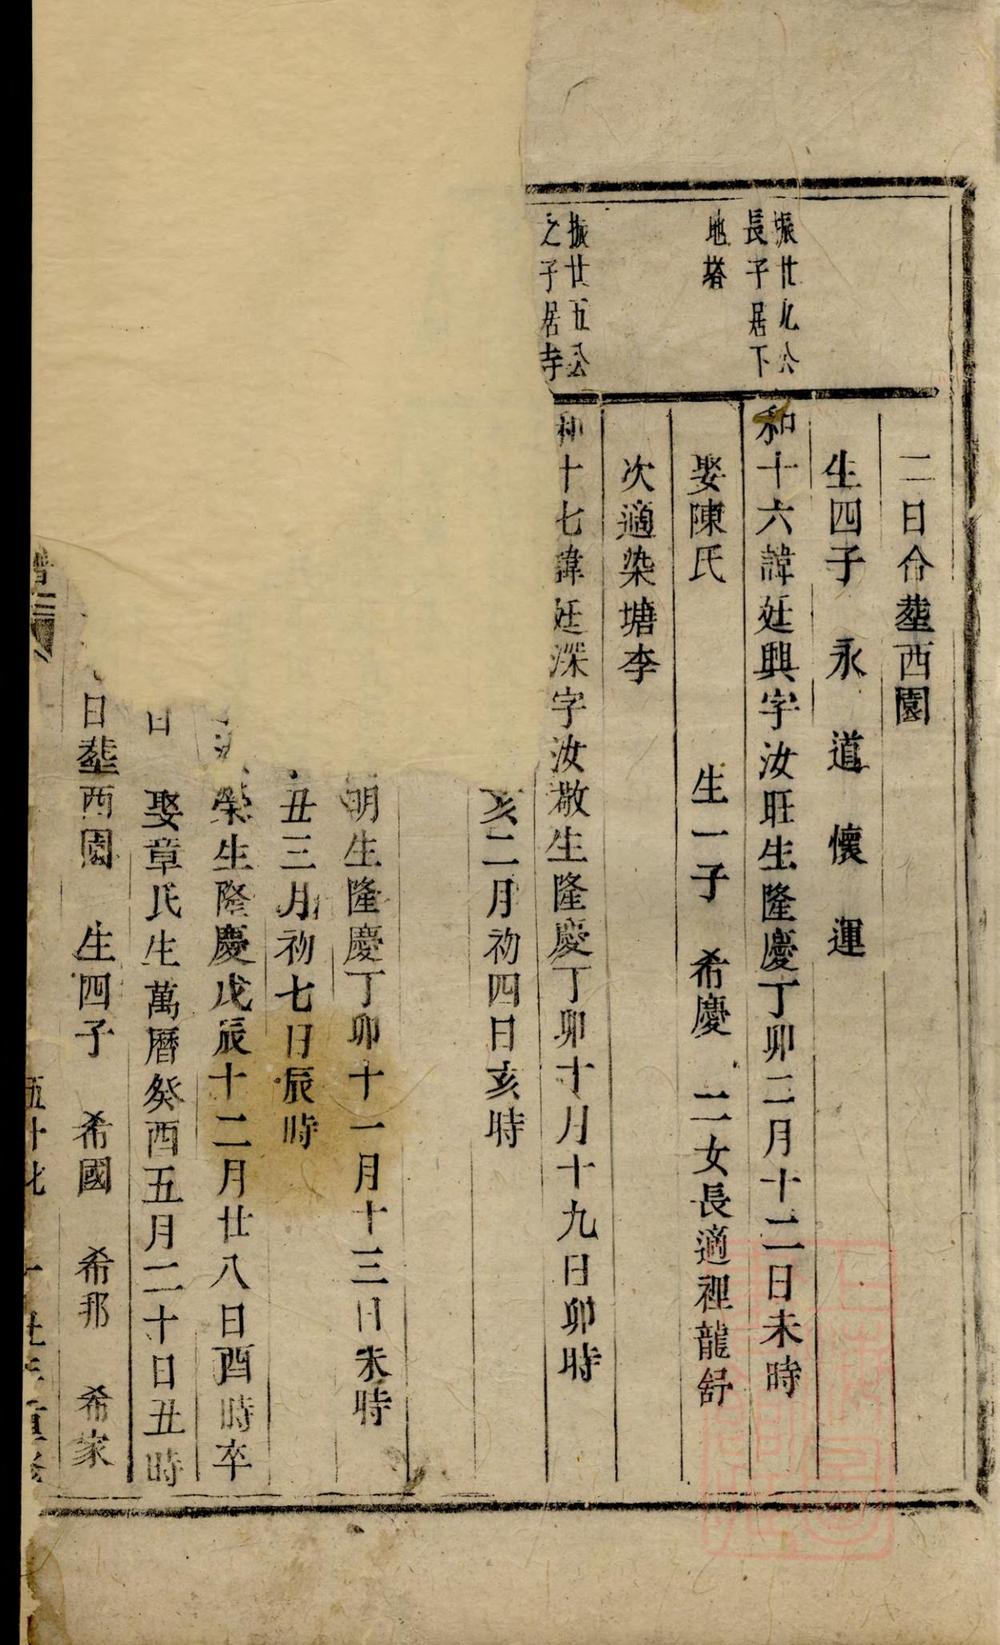 二日合塟西園
生四子 永 道 懷 運
振廿九公
長子居下
地塔
和十六諱廷興字汝旺生隆慶丁卯二月十二日未時
娶陳氏 生一子 希慶 二女長適裡龍舒
次適染塘李
振廿五公
之子居寺
和十七諱廷深字汝敬生隆慶丁卯十月十九日卯時
亥二月初四日亥時
明生隆慶丁卯十一月十三日未時
丑三月初七日辰時
榮生隆慶戊辰十二月廿八日酉時卒
日 娶章氏生萬曆癸酉五月二十日丑時
日塟西園 生四子 希國 希邦 希家
譜